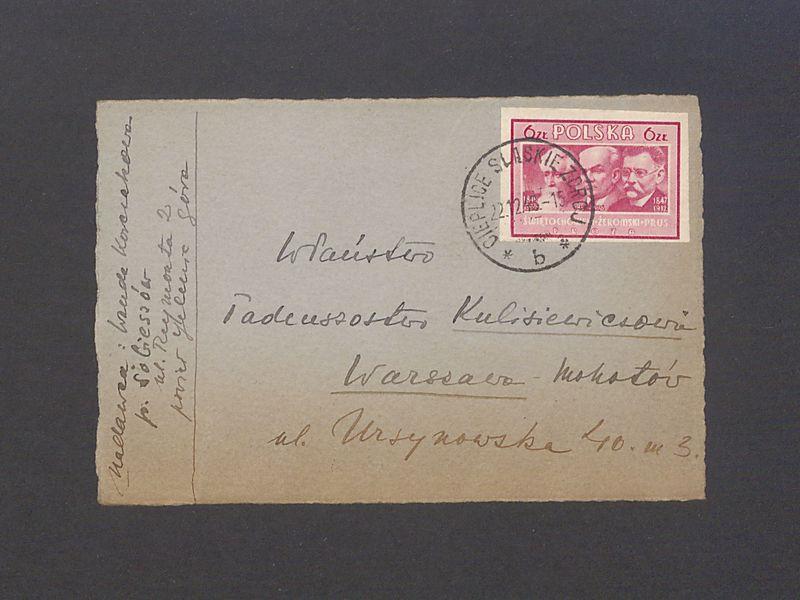 Nadawca: Wanda Korczakowa
p. Sobieszów
ul. Reymonta 2
powiat Jelenia Góra
6 ZŁ POLSKA 6 ZŁ
1847
1912
ŚWIĘTOCHOWSKI·ŻEROMSKI·PRUS
CIEPLICE ŚLĄSKIE ZDRÓJ
22.12.48.-15
* b *
WPaństwo
Tadeuszostwo Kulisiewiczowie
Warszawa - Mokotów
ul. Ursynowska 40. m 3.